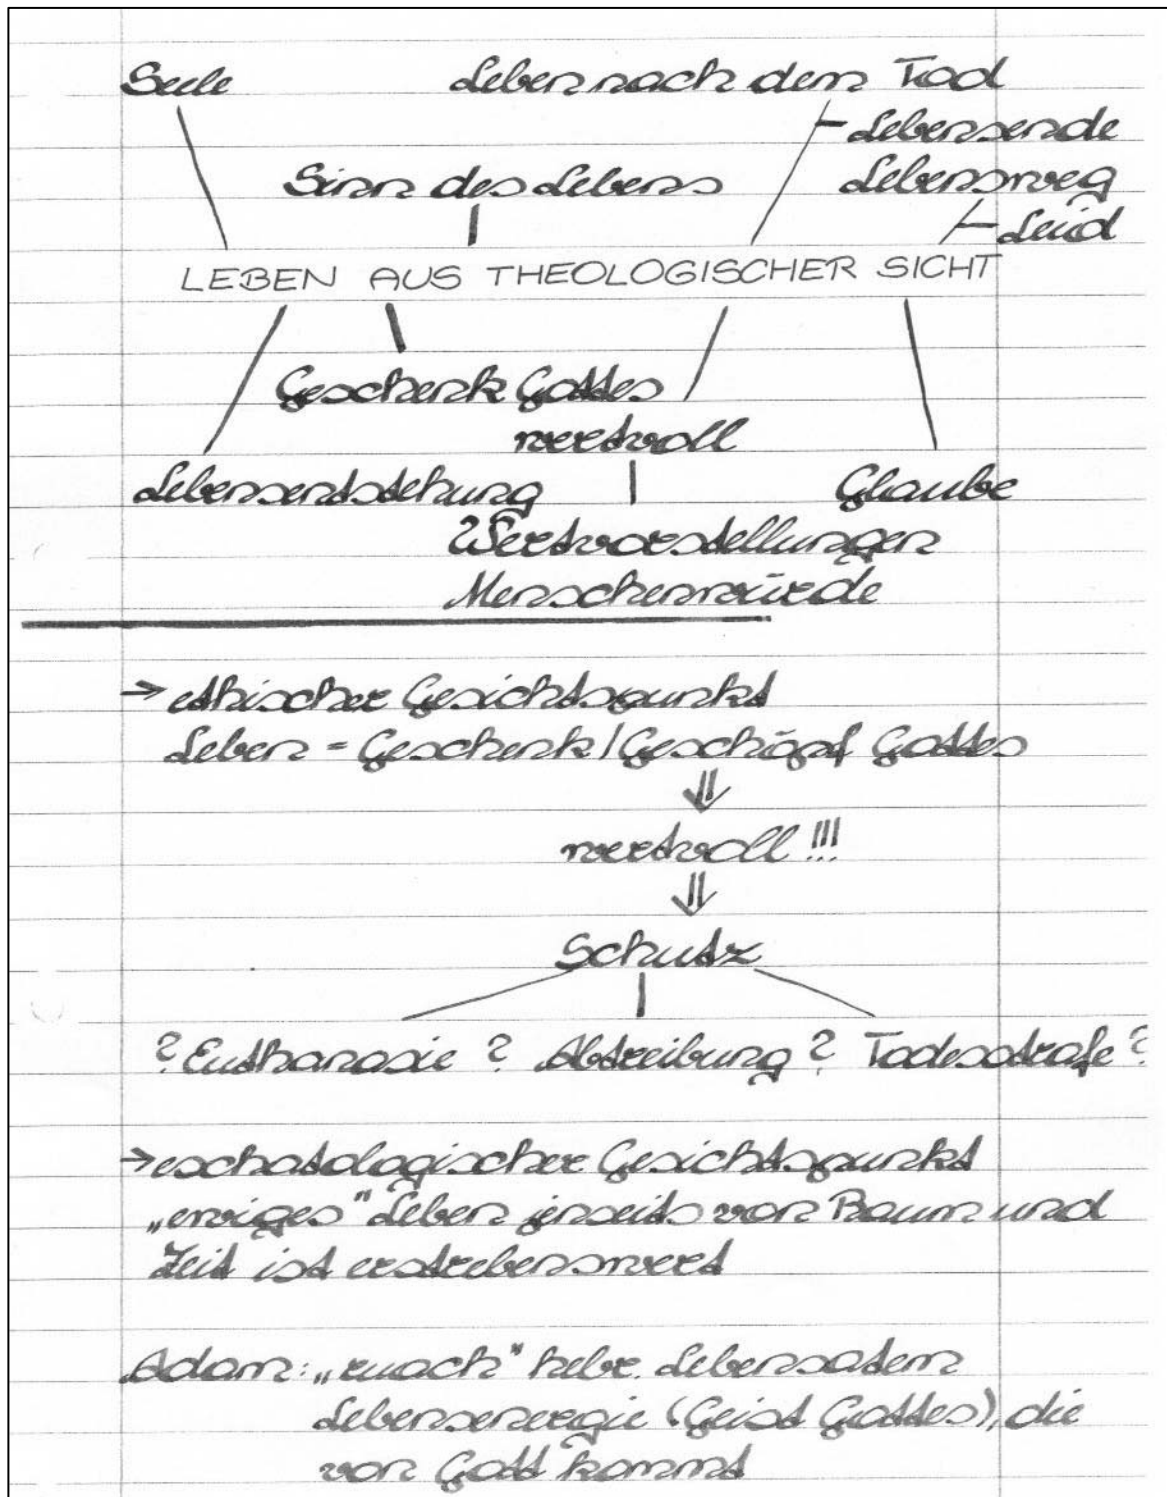 Seele Leben nach dem Tod
– Lebensende
Sinn des Lebens Lebensweg
– Leid
LEBEN AUS THEOLOGISCHER SICHT
Geschenk Gottes
wertvoll
Lebensentstehung Glaube
Wertvorstellungen
Menschenwürde
→ ethischer Gesichtspunkt
Leben = Geschenk / Geschöpf Gottes
⇓
wertvoll !!!
⇓
Schutz
? Euthanasie ? Abtreibung ? Todesstrafe ?
→ eschatologischer Gesichtspunkt
„ewiges" Leben jenseits von Raum und
Zeit ist erstrebenswert
Adam: „ruach" hebr. Lebensatem
Lebensenergie (Geist Gottes), die
von Gott kommt